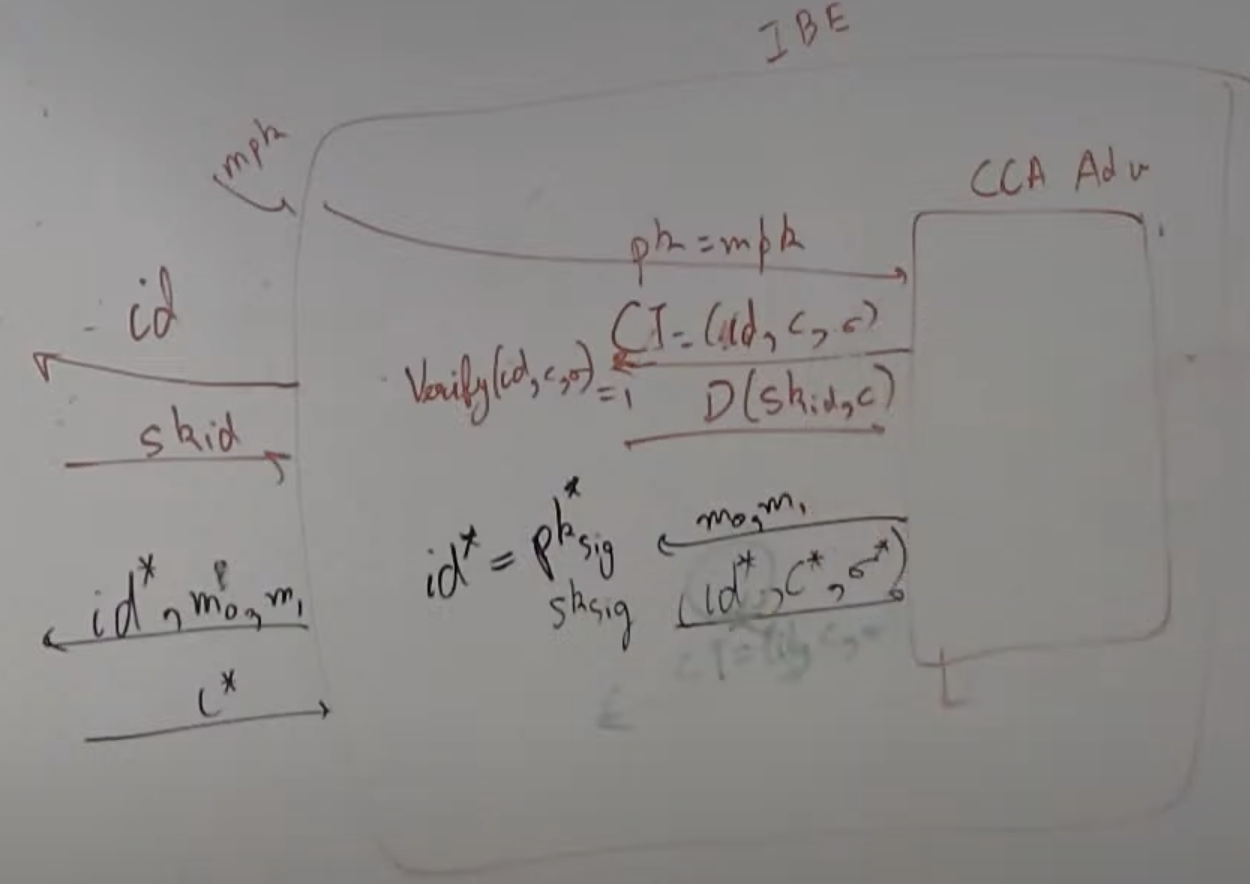 IBE
mpk
CCA Adv
pk = mpk
id
CT = (id, c, σ)
Verify(id, c, σ) = 1
D(skid, c)
skid
m0, m1
id* = pk*sig
sksig
(id*, c*, σ*)
id*, m0, m1
c*